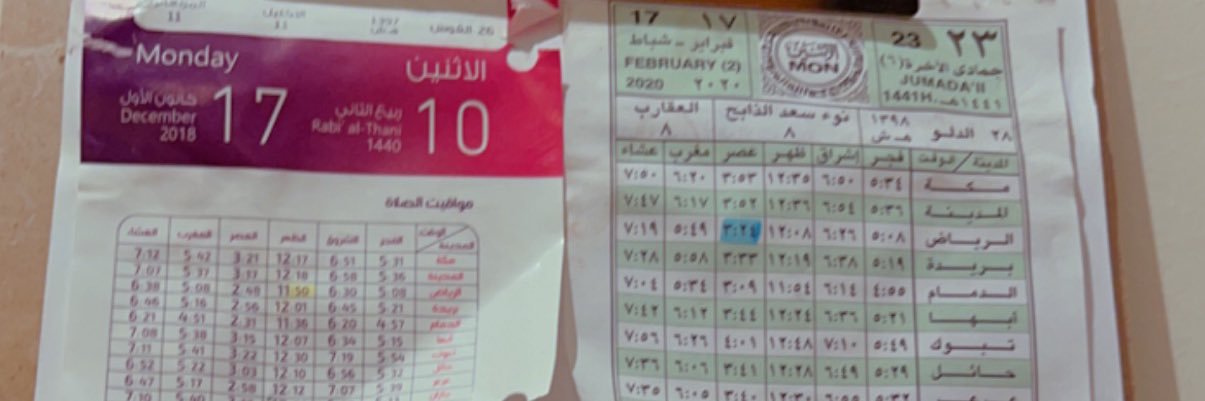 11
11
26 القوس
Monday
الاثنين
كانون الأول
December
2018
17
ربيع الثاني
Rabi' al-Thani
1440
10
مواقيت الصلاة
المدينة الوقت الفجر الشروق الظهر العصر المغرب العشاء
مكة 5:31 6:51 12:17 3:21 5:42 7:12
المدينة 5:36 6:58 12:18 3:17 5:37 7:07
الرياض 5:08 6:30 11:50 2:48 5:08 6:38
بريدة 5:21 6:45 12:01 2:56 5:16 6:46
الدمام 4:57 6:20 11:36 2:31 4:51 6:21
أبها 5:15 6:34 12:07 3:15 5:38 7:08
تبوك 5:54 7:19 12:30 3:22 5:41 7:11
حائل 5:32 6:56 12:10 3:03 5:22 6:52
7:07 12:12 2:58 5:17 6:47
17 ١٧
فبراير - شباط
FEBRUARY (2)
2020 ٢٠٢٠
MON
23 ٢٣
جمادى الآخرة (٦)
JUMADA'II
1441H. ١٤٤١هـ
٢٨ الدلو ١٣٩٨ هـ ش
نوء سعد الذابح ٨
العقارب ٨
المدينة/الوقت فجر إشراق ظهر عصر مغرب عشاء
مكة ٥:٣٤ ٦:٥٠ ١٢:٣٥ ٣:٥٣ ٦:٢٠ ٧:٥٠
المدينة ٥:٣٦ ٦:٥٤ ١٢:٣٦ ٣:٥٢ ٦:١٧ ٧:٤٧
الرياض ٥:٠٨ ٦:٢٦ ١٢:٠٨ ٣:٢٤ ٥:٤٩ ٧:١٩
بريدة ٥:١٩ ٦:٣٨ ١٢:١٩ ٣:٣٣ ٥:٥٨ ٧:٢٨
الدمام ٤:٥٥ ٦:١٤ ١١:٥٤ ٣:٠٩ ٥:٣٤ ٧:٠٤
أبها ٥:٢١ ٦:٣٦ ١٢:٢٤ ٣:٤٤ ٦:١٢ ٧:٤٢
تبوك ٥:٤٩ ٧:١٠ ١٢:٤٨ ٤:٠١ ٦:٢٦ ٧:٥٦
حائل ٥:٢٩ ٦:٤٩ ١٢:٢٨ ٣:٤١ ٦:٠٦ ٧:٣٦
٦:٠٥ ٧:٣٥